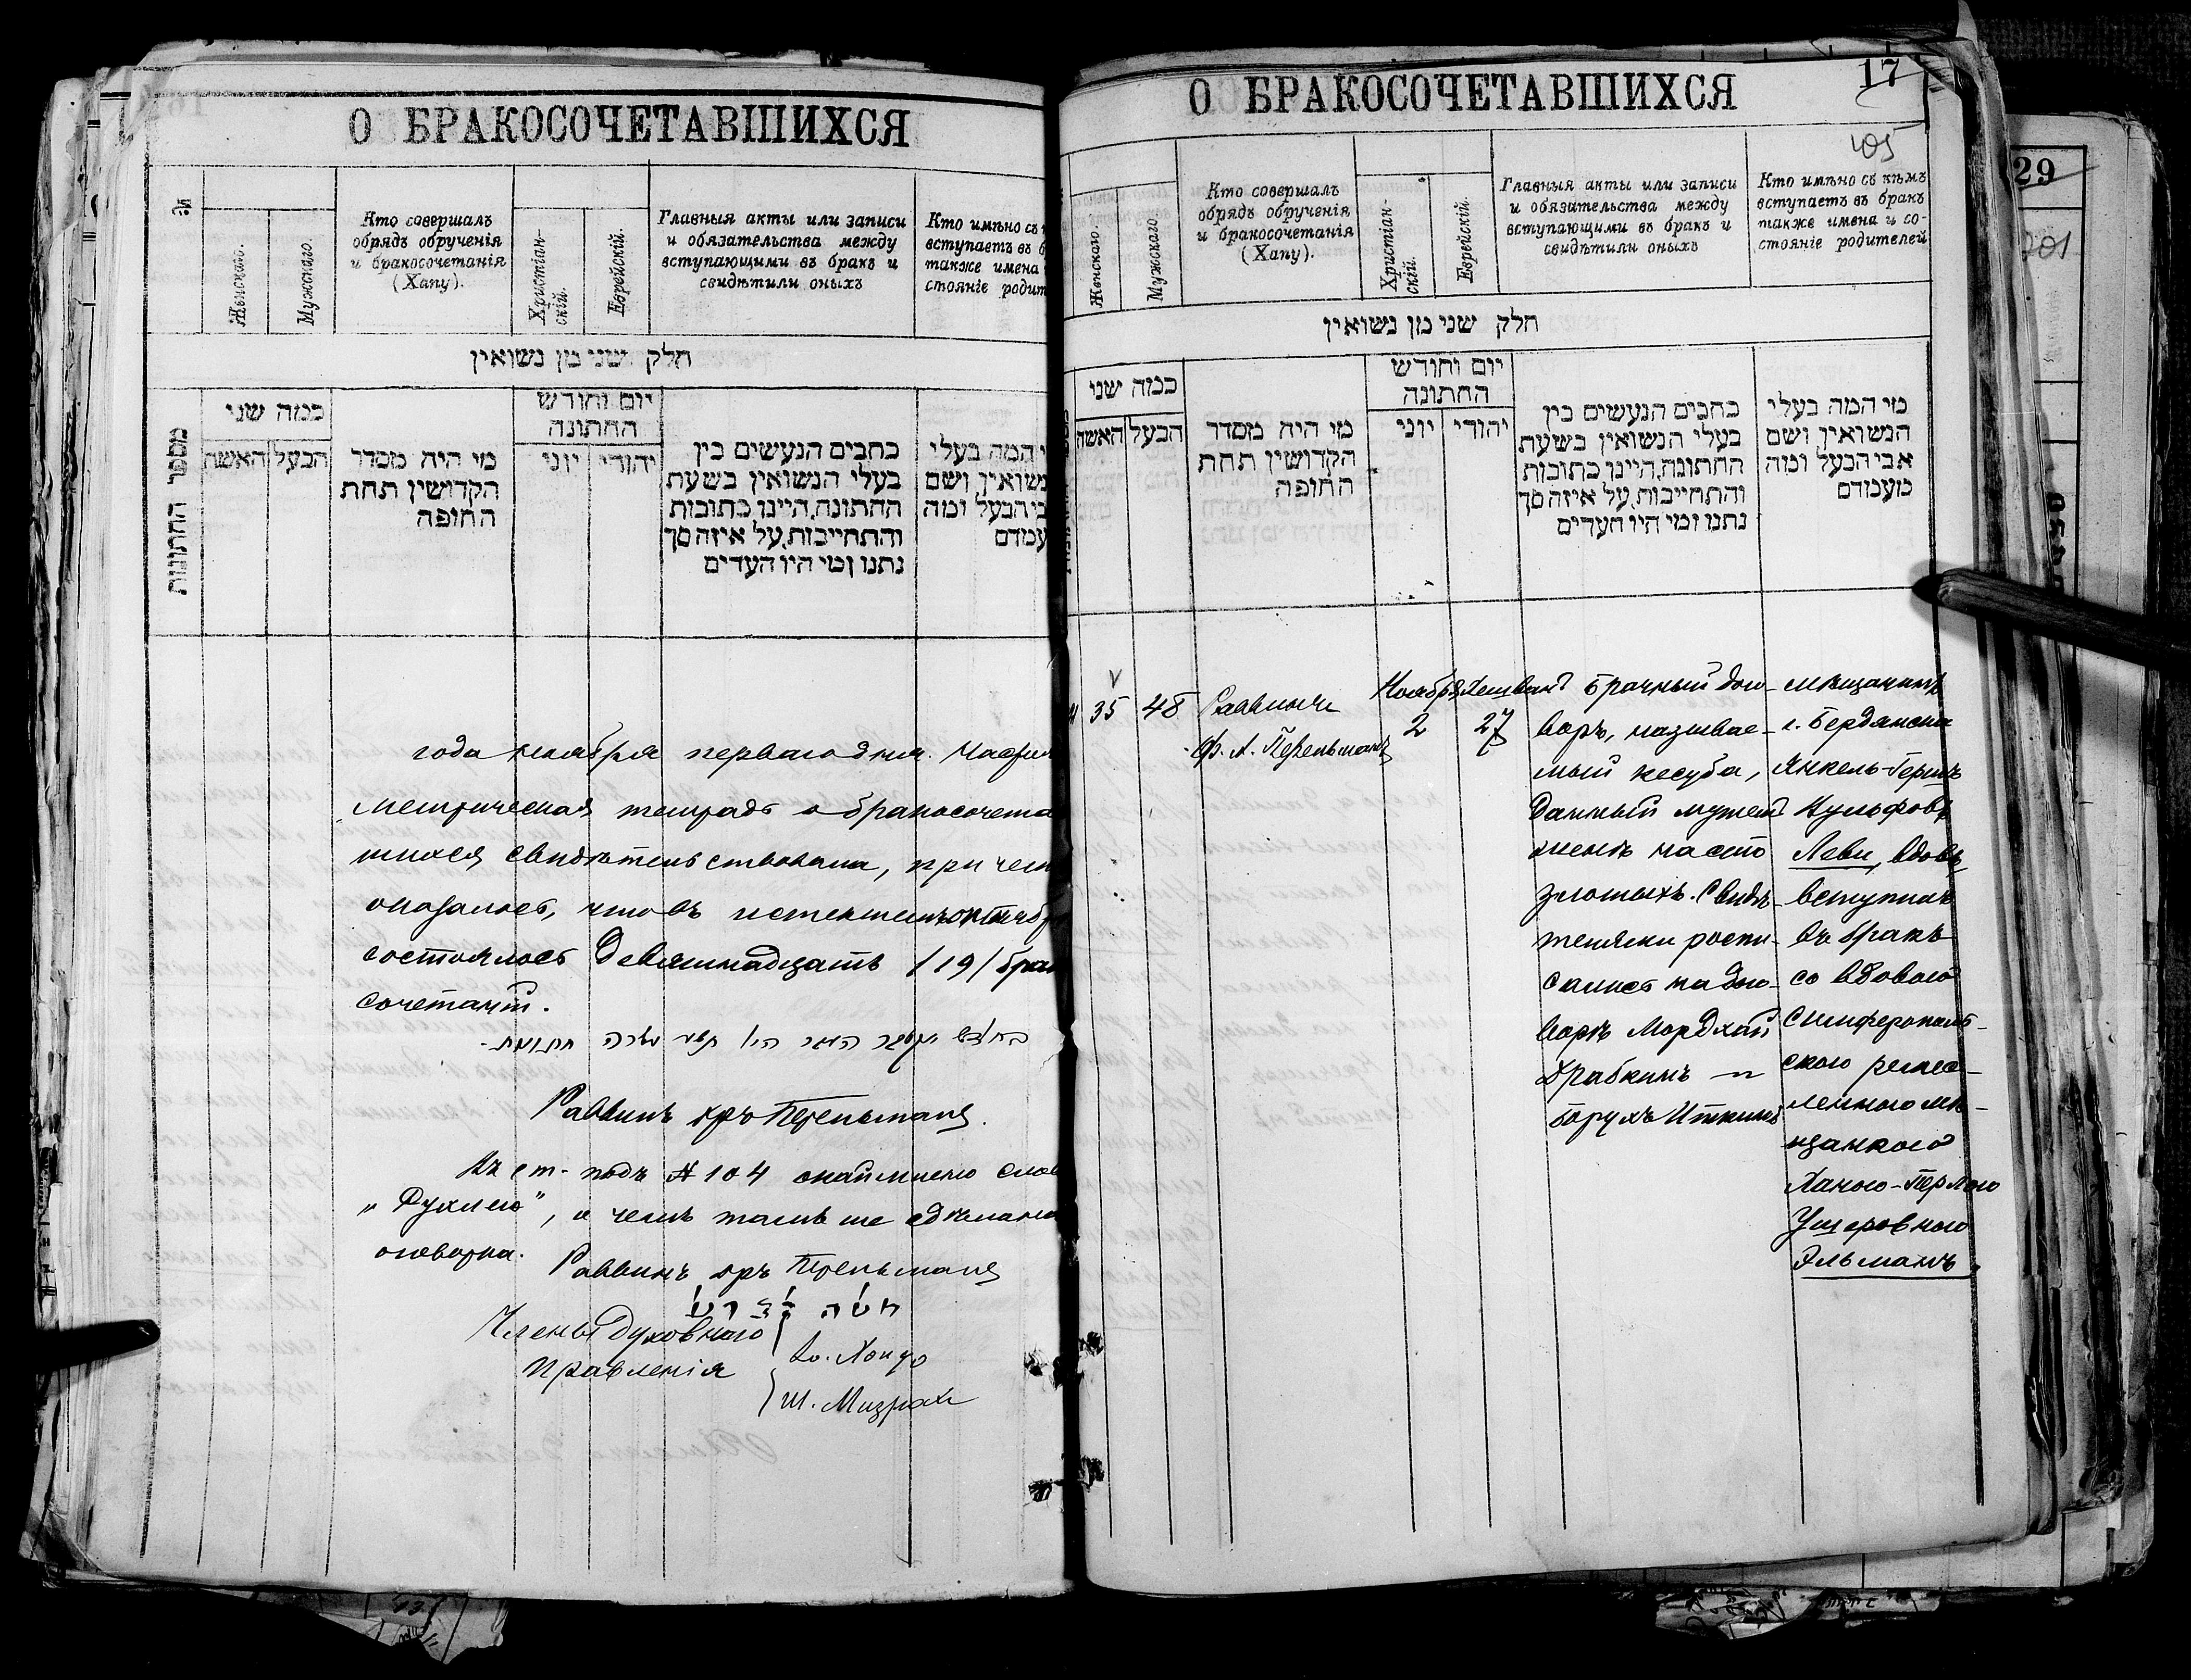 О БРАКОСОЧЕТАВШИХСЯ
№
Женскаго.
Мужскаго.
Кто совершалъ
обрядъ обрученія
и бракосочетанія
(Хапу).
Христіан-
скій.
Еврейскій.
Главныя акты или записи
и обязательства между
вступающими въ бракъ и
свидѣтили оныхъ
Кто имѣно съ
вступаетъ въ б
также имена
стояніе родит
חלק שני מן נשואין
מספר החתונות
כמה שני
האשה
הבעל
מי היה מסדר
הקדושין תחת
החופה
יום וחודש
החתונה
יוני
יהודי
כתבים הנעשים בין
בעלי הנשואין בשעת
החתונה, היינו כתובות
והתחייבות, על איזה סך
נתנו ומי היו העדים
י המה בעלי
נשואין ושם
בי הבעל ומה
עמדם
года ноября перваго дня. Часть
метрическая тетрадь о бракосочета
шихся свидѣтельствована, при чем
оказалось, что въ истекшемъ октябр
состоялось Девятнадцать /19/ брак
сочетаній.
Раввинъ дръ Перельманъ.
Въ ст. подъ № 104 окаймлено слов
„Рухлею", о чемъ тамъ же сдѣлана
оговорка.
Раввинъ дръ Перельманъ
Члены Духовнаго
Правленія
Ш. Мизрахи
О БРАКОСОЧЕТАВШИХСЯ
17
405
Женскаго.
Мужскаго.
Кто совершалъ
обрядъ обрученія
и бракосочетанія
(Хапу).
Христіан-
скій.
Еврейскій.
Главныя акты или записи
и обязательства между
вступающими въ бракъ и
свидѣтили оныхъ
Кто имѣно съ кѣмъ
вступаетъ въ бракъ
также имена и со-
стояніе родителей
חלק שני מן נשואין
כמה שני
האשה
הבעל
מי היה מסדר
הקדושין תחת
החופה
יום וחודש
החתונה
יוני
יהודי
כתבים הנעשים בין
בעלי הנשואין בשעת
החתונה, היינו כתובות
והתחייבות, על איזה סך
נתנו ומי היו העדים
מי המה בעלי
הנשואין ושם
אבי הבעל ומה
מעמדם
35
48
Раввинъ
Ф. А. Перельманъ
Ноября
2
Хешванъ
27
Брачный дого-
воръ, называе-
мый кесуба,
данный мужемъ
женѣ на сто
злотыхъ. Свидѣ-
телями роспи-
сались на дого-
ворѣ Мордхай
Драбкинъ и
Борухъ Иткинъ
Мѣщанинъ
г. Бердянска
Янкель-Гершъ
Вульфовъ
Леви, вдовъ
вступилъ
въ бракъ
со вдовою
Симферополь-
скою ремес-
ленною мѣ-
щанкою
Ханою-Перлою
Ушеровною
Эльманъ.
29
201